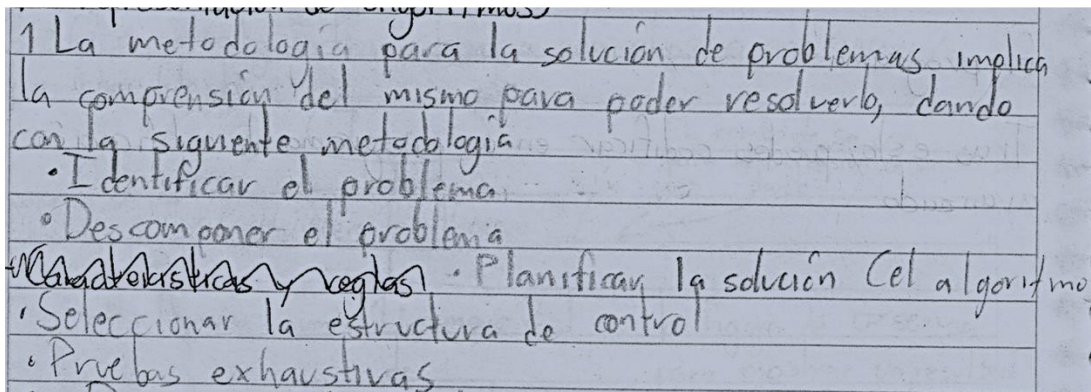 1 La metodologia para la solución de problemas implica
la comprensión del mismo para poder resolverlo, dando
con la siguiente metodologia
• Identificar el problema
• Descomponer el problema
• Caracteristicas y reglas • Planificar la solución (el algoritmo
• Seleccionar la estructura de control
• Pruebas exhaustivas